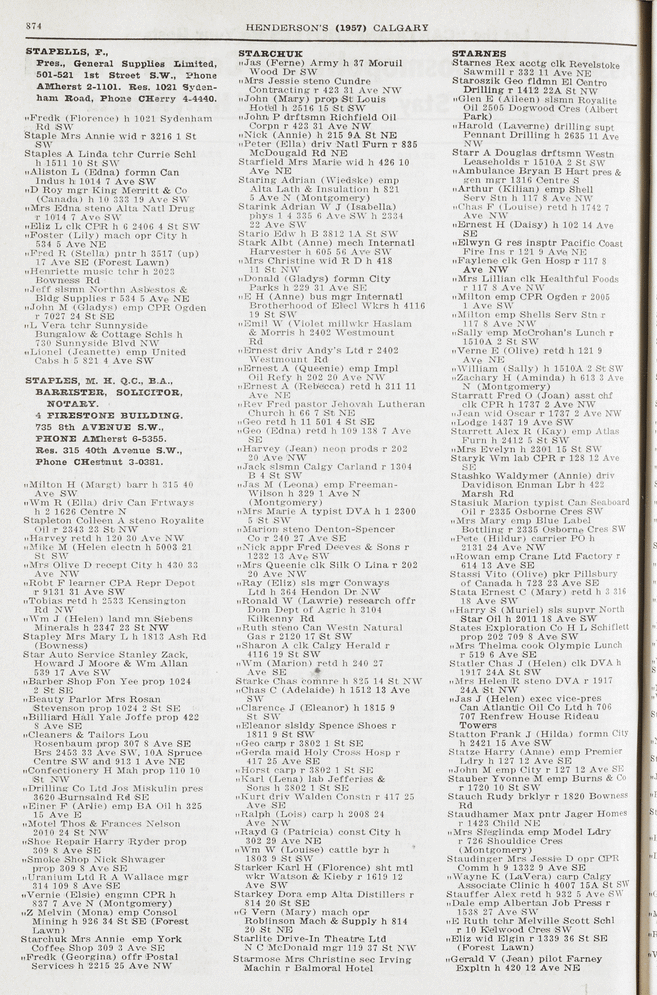 874
HENDERSON'S (1957) CALGARY
STAPELLS, F.,
Pres., General Supplies Limited,
501-521 1st Street S.W., Phone
AMherst 2-1101. Res. 1021 Syden-
ham Road, Phone CHerry 4-4440.
„Fredk (Florence) h 1021 Sydenham
Rd SW
Staple Mrs Annie wid r 3216 1 St
SW
Staples A Linda tchr Currie Schl
h 1511 10 St SW
„Aliston L (Edna) formn Can
Indus h 1014 7 Ave SW
„D Roy mgr King Merritt & Co
(Canada) h 10 333 19 Ave SW
„Mrs Edna steno Alta Natl Drug
r 1014 7 Ave SW
„Eliz L clk CPR h 6 2406 4 St SW
„Foster (Lily) mach opr City h
534 5 Ave NE
„Fred R (Stella) pntr h 3517 (up)
17 Ave SE (Forest Lawn)
„Henriette music tchr h 2023
Bowness Rd
„Jeff slsmn Northn Asbestos &
Bldg Supplies r 534 5 Ave NE
„John M (Gladys) emp CPR Ogden
r 7027 24 St SE
„L Vera tchr Sunnyside
Bungalow & Cottage Schls h
730 Sunnyside Blvd NW
„Lionel (Jeanette) emp United
Cabs h 5 821 4 Ave SW
STAPLES, M. H. Q.C., B.A.,
BARRISTER, SOLICITOR,
NOTARY.
4 FIRESTONE BUILDING.
735 8th AVENUE S.W.,
PHONE AMherst 6-5355.
Res. 315 40th Avenue S.W.,
Phone CHestnut 3-0381.
„Milton H (Margt) barr h 315 40
Ave SW
„Wm R (Ella) driv Can Frtways
h 2 1626 Centre N
Stapleton Colleen A steno Royalite
Oil r 2343 23 St NW
„Harvey retd h 120 30 Ave NW
„Mike M (Helen electn h 5003 21
St SW
„Mrs Olive D recept City h 430 33
Ave NW
„Robt F learner CPA Repr Depot
r 9131 31 Ave SW
„Tobias retd h 2533 Kensington
Rd NW
„Wm J (Helen) land mn Siebens
Minerals h 2347 23 St NW
Stapley Mrs Mary L h 1813 Ash Rd
(Bowness)
Star Auto Service Stanley Zack,
Howard J Moore & Wm Allan
539 17 Ave SW
„Barber Shop Fon Yee prop 1024
2 St SE
„Beauty Parlor Mrs Rosan
Stevenson prop 1024 2 St SE
„Billiard Hall Yale Joffe prop 422
8 Ave SE
„Cleaners & Tailors Lou
Rosenbaum prop 307 8 Ave SE
Brs 2453 33 Ave SW, 10A Spruce
Centre SW and 913 1 Ave NE
„Confectionery H Mah prop 110 10
St NW
„Drilling Co Ltd Jos Miskulin pres
3620 Burnsalnd Rd SE
„Einer F (Arlie) emp BA Oil h 325
15 Ave E
„Motel Thos & Frances Nelson
2010 24 St NW
„Shoe Repair Harry Ryder prop
309 8 Ave SE
„Smoke Shop Nick Shwager
prop 309 8 Ave SE
„Uranium Ltd R A Wallace mgr
314 109 8 Ave SE
„Vernie (Elsie) engmn CPR h
837 7 Ave N (Montgomery)
„Z Melvin (Mona) emp Consol
Mining h 926 34 St SE (Forest
Lawn)
Starchuk Mrs Annie emp York
Coffee Shop 309 3 Ave SE
„Fredk (Georgina) offr Postal
Services h 2215 25 Ave NW
STARCHUK
„Jas (Ferne) Army h 37 Moruil
Wood Dr SW
„Mrs Jessie steno Cundre
Contracting r 423 31 Ave NW
„John (Mary) prop St Louis
Hotel h 2516 15 St SW
„John P drftsmn Richfield Oil
Corpn r 423 31 Ave NW
„Nick (Annie) h 215 9A St NE
„Peter (Ella) driv Natl Furn r 835
McDougald Rd NE
Starfield Mrs Marie wid h 426 10
Ave NE
Staring Adrian (Wiedske) emp
Alta Lath & Insulation h 821
5 Ave N (Montgomery)
Starink Adrian W J (Isabella)
phys 1 4 335 6 Ave SW h 2334
22 Ave SW
Stario Edw h B 3812 1A St SW
Stark Albt (Anne) mech Internatl
Harvester h 605 56 Ave SW
„Mrs Christine wid R D h 418
11 St NW
„Donald (Gladys) formn City
Parks h 229 31 Ave SE
„E H (Anne) bus mgr Internatl
Brotherhood of Elecl Wkrs h 4116
19 St SW
„Emil W (Violet millwkr Haslam
& Morris h 2402 Westmount
Rd
„Ernest driv Andy's Ltd r 2402
Westmount Rd
„Ernest A (Queenie) emp Impl
Oil Refy h 202 20 Ave NW
„Ernest A (Rebecca) retd h 311 11
Ave NE
„Rev Fred pastor Jehovah Lutheran
Church h 66 7 St NE
„Geo retd h 11 501 4 St SE
„Geo (Edna) retd h 109 138 7 Ave
SE
„Harvey (Jean) neon prods r 202
20 Ave NW
„Jack slsmn Calgy Carland r 1304
B 4 St SW
„Jas M (Leona) emp Freeman-
Wilson h 329 1 Ave N
(Montgomery)
„Mrs Marie A typist DVA h 1 2300
5 St SW
„Marion steno Denton-Spencer
Co r 240 27 Ave SE
„Nick appr Fred Deeves & Sons r
1232 13 Ave SW
„Mrs Queenie clk Silk O Lina r 202
20 Ave NW
„Ray (Eliz) sls mgr Conways
Ltd h 364 Hendon Dr NW
„Ronald W (Lawrie) research offr
Dom Dept of Agric h 3104
Kilkenny Rd
„Ruth steno Can Westn Natural
Gas r 2120 17 St SW
„Sharon A clk Calgy Herald r
4116 19 St SW
„Wm (Marion) retd h 240 27
Ave SE
Starke Chas comnre h 825 14 St NW
„Chas C (Adelaide) h 1512 13 Ave
SW
„Clarence J (Eleanor) h 1815 9
St SW
„Eleanor slsldy Spence Shoes r
1811 9 St SW
„Geo carp r 3802 1 St SE
„Gerda maid Holy Cross Hosp r
417 25 Ave SE
„Horst carp r 3802 1 St SE
„Karl (Lena) lab Jefferies &
Sons h 3802 1 St SE
„Kurt driv Walden Constn r 417 25
Ave SE
„Ralph (Lois) carp h 2008 24
Ave NW
„Rayd G (Patricia) const City h
302 29 Ave NE
„Wm W (Louise) cattle byr h
1803 9 St SW
Starker Karl H (Florence) sht mtl
wkr Watson & Kieby r 1619 12
Ave SW
Starkey Dora emp Alta Distillers r
814 20 St SE
„G Vern (Mary) mach opr
Roblinson Mach & Supply h 814
20 St NE
Starlite Drive-In Theatre Ltd
N C McDonald mgr 119 37 St NW
Starmose Mrs Christine sec Irving
Machin r Balmoral Hotel
STARNES
Starnes Rex acctg clk Revelstoke
Sawmill r 332 11 Ave NE
Staroszik Geo fldmn El Centro
Drilling r 1412 22A St NW
„Glen E (Aileen) slsmn Royalite
Oil 2505 Dogwood Cres (Albert
Park)
„Harold (Laverne) drilling supt
Pennant Drilling h 2635 11 Ave
NW
Starr A Douglas drftsmn Westn
Leaseholds r 1510A 2 St SW
„Ambulance Bryan B Hart pres &
gen mgr 1316 Centre S
„Arthur (Kilian) emp Shell
Serv Stn h 117 8 Ave NW
„Chas F (Louise) retd h 1742 7
Ave NW
„Ernest H (Daisy) h 102 14 Ave
SE
„Elwyn G res insptr Pacific Coast
Fire Ins r 121 9 Ave NE
„Faylene clk Gen Hosp r 117 8
Ave NW
„Mrs Lillian clk Healthful Foods
r 117 8 Ave NW
„Milton emp CPR Ogden r 2005
1 Ave SW
„Milton emp Shells Serv Stn r
117 8 Ave NW
„Sally emp McCrohan's Lunch r
1510A 2 St SW
„Verne E (Olive) retd h 121 9
Ave NE
„William (Sally) h 1510A 2 St SW
„Zachary H (Aminda) h 613 3 Ave
N (Montgomery)
Starratt Fred O (Joan) asst chf
clk CPR h 1737 2 Ave NW
„Jean wid Oscar r 1737 2 Ave NW
„Lodge 1437 19 Ave SW
Starrett Alex R (Kay) emp Atlas
Furn h 2412 5 St SW
„Mrs Evelyn h 2301 15 St SW
Staryk Wm lab CPR r 128 12 Ave
SE
Stashko Waldymer (Annie) driv
Davidson Enman Lbr h 422
Marsh Rd
Stasiuk Marion typist Can Seaboard
Oil r 2335 Osborne Cres SW
„Mrs Mary emp Blue Label
Bottling r 2335 Osborne Cres SW
„Pete (Hildur) carrier PO h
2131 24 Ave NW
„Rowan emp Crane Ltd Factory r
614 13 Ave SE
Stassi Vito (Olive) pkr Pillsbury
of Canada h 723 23 Ave SE
Stata Ernest C (Mary) retd h 3 316
18 Ave SW
„Harry S (Muriel) sls supvr North
Star Oil h 2011 18 Ave SW
States Exploration Co H L Schiflett
prop 202 709 8 Ave SW
„Mrs Thelma cook Olympic Lunch
r 519 6 Ave SE
Statler Chas J (Helen) clk DVA h
1917 24A St SW
„Mrs Helen R steno DVA r 1917
24A St NW
„Jas J (Helen) exec vice-pres
Can Atlantic Oil Co Ltd h 706
707 Renfrew House Rideau
Towers
Statton Frank J (Hilda) formn City
h 2421 15 Ave SW
Statze Harry (Anne) emp Premier
Ldry h 127 12 Ave SE
„John M emp City r 127 12 Ave SE
Stauber Yvonne M emp Burns & Co
r 1720 10 St SW
Stauch Rudy brklyr r 1820 Bowness
Rd
Staudhamer Max pntr Jager Homes
r 1423 Child NE
„Mrs Sieglinda emp Model Ldry
r 726 Shouldice Cres
(Montgomery)
Staudinger Mrs Jessie D opr CPR
Comm h 9 1332 9 Ave SE
„Wayne K (LaVera) carp Calgy
Associate Clinic h 4007 15A St SW
Stauffer Alex retd h 932 5 Ave SW
„Dale emp Albertan Job Press r
1538 27 Ave SW
„E Ruth tchr Melville Scott Schl
r 10 Kelwood Cres SW
„Eliz wid Elgin r 1339 36 St SE
(Forest Lawn)
„Gerald V (Jean) pilot Farney
Expltn h 420 12 Ave NE